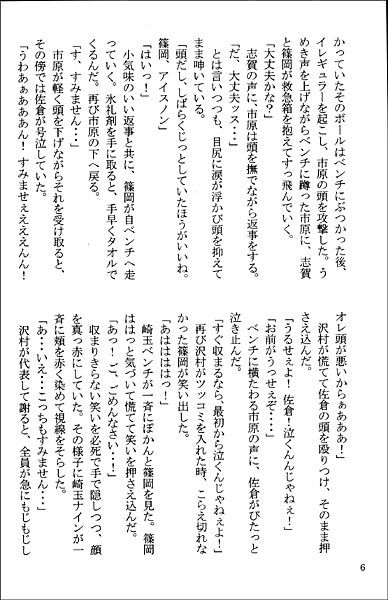 かっていたそのボールはベンチにぶつかった後、
イレギュラーを起こし、市原の頭を攻撃した。う
めき声を上げながらベンチに蹲った市原に、志賀
と篠岡が救急箱を抱えてすっ飛んでいく。
「大丈夫かな?」
志賀の声に、市原は頭を撫でながら返事をする。
「だ、大丈夫ッス・・・」
とは言いつつも、目尻に涙が浮かび頭を抑えて
まま呻いている。
「頭だし、しばらくじっとしていたほうがいいね。
篠岡、アイスノン」
「はいっ!」
小気味のいい返事と共に、篠岡が自ベンチへ走
っていく。氷礼剤を手に取ると、手早くタオルで
くるんだ。再び市原の下へ戻る。
「す、すみません・・・」
市原が軽く頭を下げながらそれを受け取ると、
その傍では佐倉が号泣していた。
「うわあぁあああん! すみませぇえええんん!
オレ頭が悪いからぁあああ!」
沢村が慌てて佐倉の頭を殴りつけ、そのまま押
さえ込んだ。
「うるせぇよ! 佐倉!泣くんじゃねぇ!」
「お前がうっせぇぞ・・・」
ベンチに横たわる市原の声に、佐倉がぴたっと
泣き止んだ。
「すぐ収まるなら、最初から泣くんじゃねぇよ!」
再び沢村がツッコミを入れた時、こらえ切れな
かった篠岡が笑い出した。
「あはははは!」
崎玉ベンチが一斉にぽかんと篠岡を見た。篠岡
ははっと気づいて慌てて笑いを押さえ込んだ。
「あっ! ご、ごめんなさい・・!」
収まりきらない笑いを必死で手で隠しつつ、顔
を真っ赤にしていた。その様子に崎玉ナインが一
斉に頬を赤く染めて視線をそらした。
「あ・・いえ・・こっちもすみません・・」
沢村が代表して謝ると、全員が急にもじもじし
6